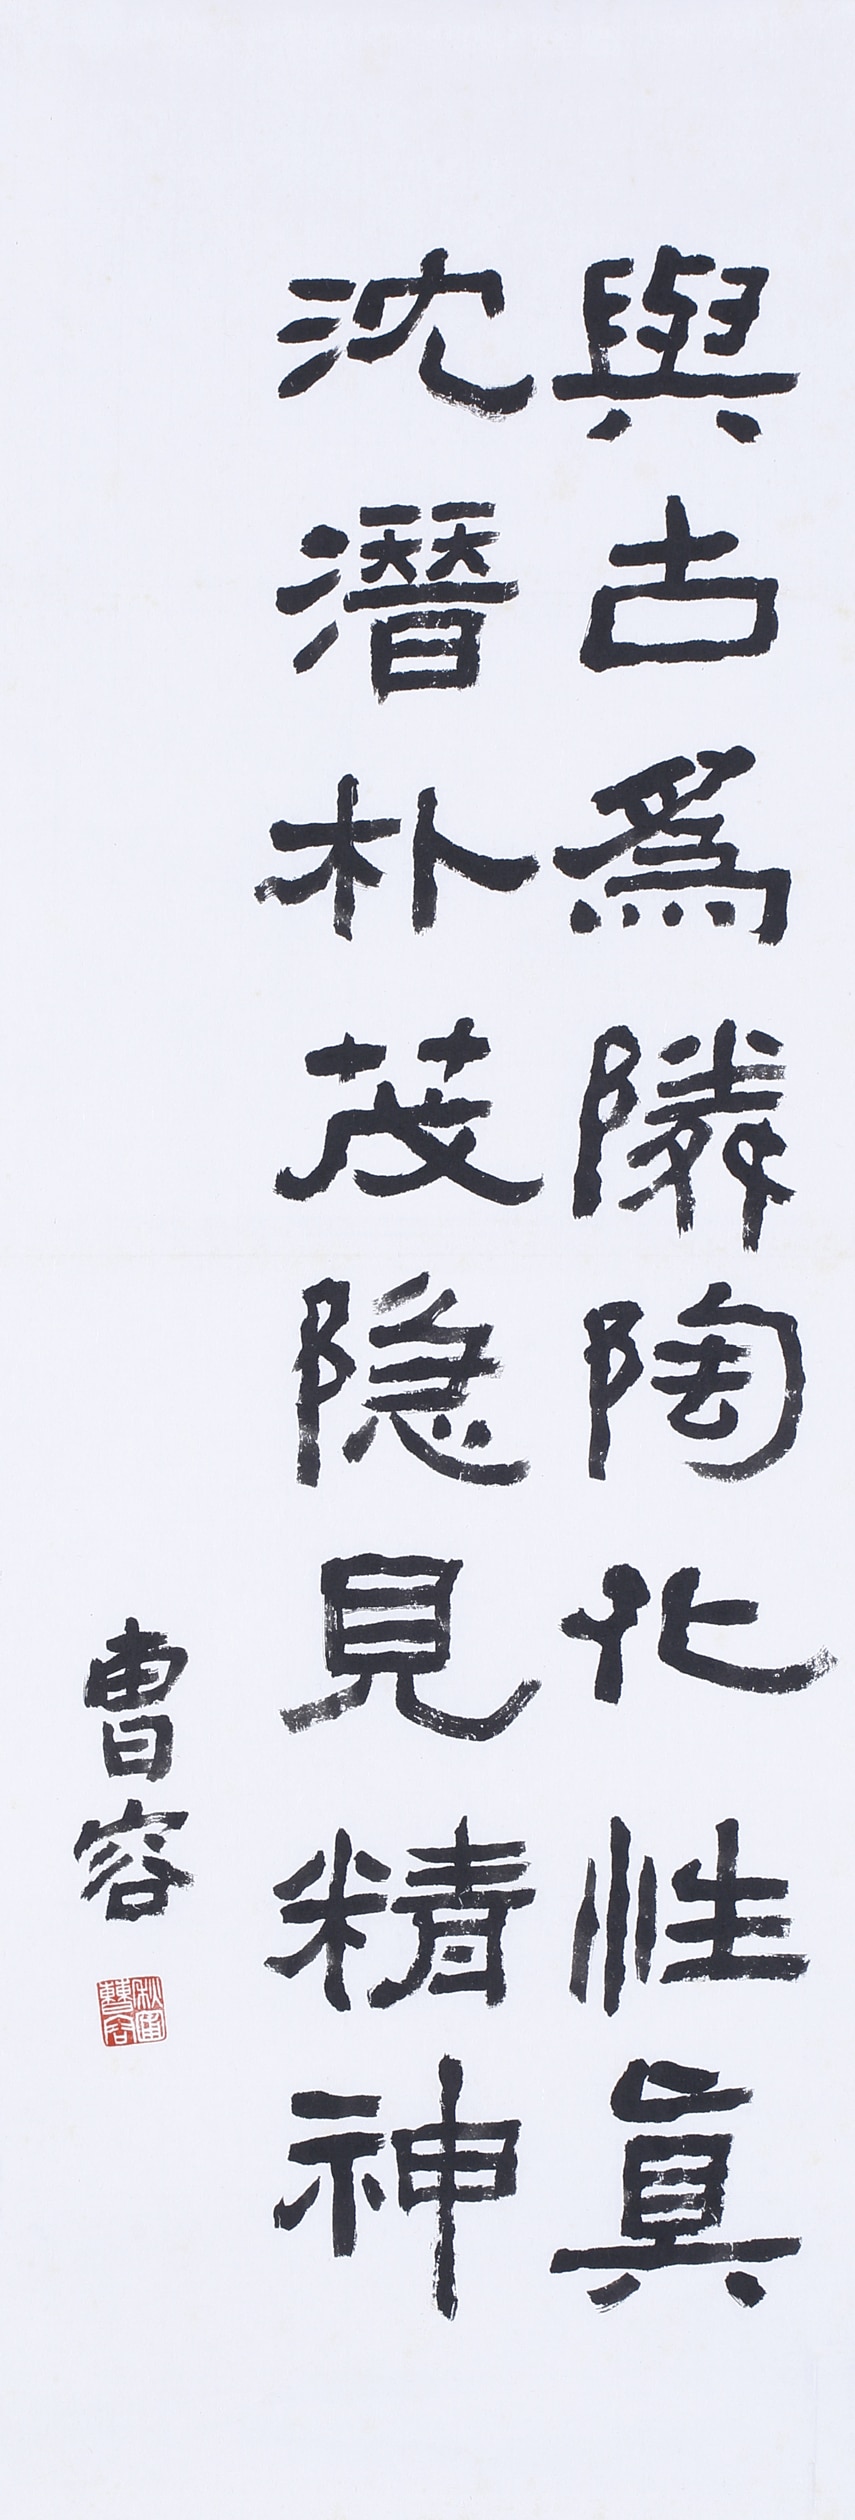 與古爲隣陶化性真
沈潛朴茂隐見精神
曹容
秋圃曹容